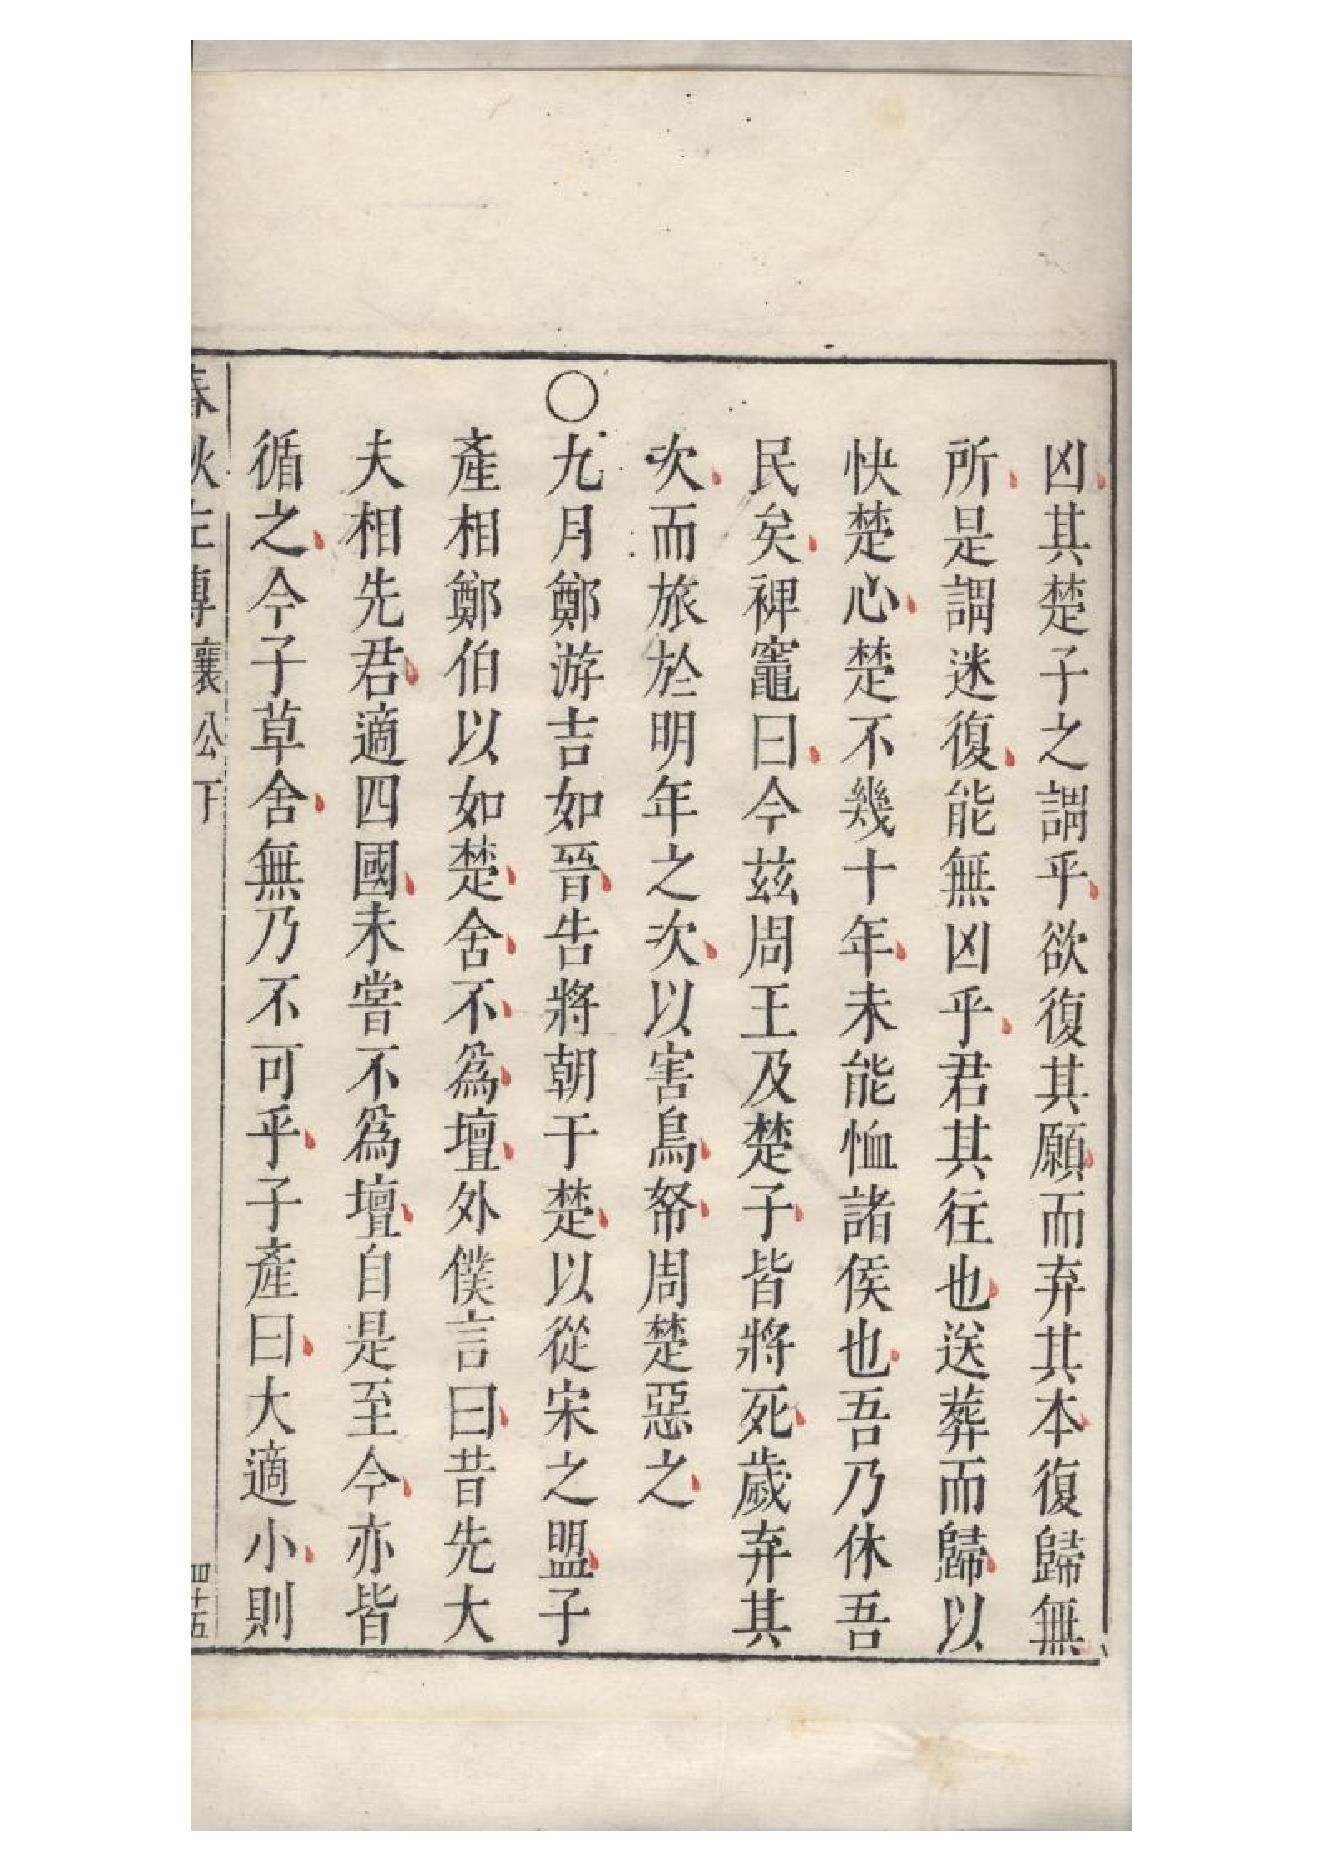 凶其楚子之謂乎欲復其願而弃其本復歸無
所是謂迷復能無凶乎君其往也送葬而歸以
快楚心楚不幾十年未能恤諸侯也吾乃休吾
民矣裨竈曰今兹周王及楚子皆將死歲弃其
次而旅於明年之次以害鳥帑周楚惡之
○九月鄭游吉如晉告將朝于楚以從宋之盟子
產相鄭伯以如楚舍不爲壇外僕言曰昔先大
夫相先君適四國未嘗不爲壇自是至今亦皆
循之今子草舍無乃不可乎子產曰大適小則
春秋左傳襄公下 四十五